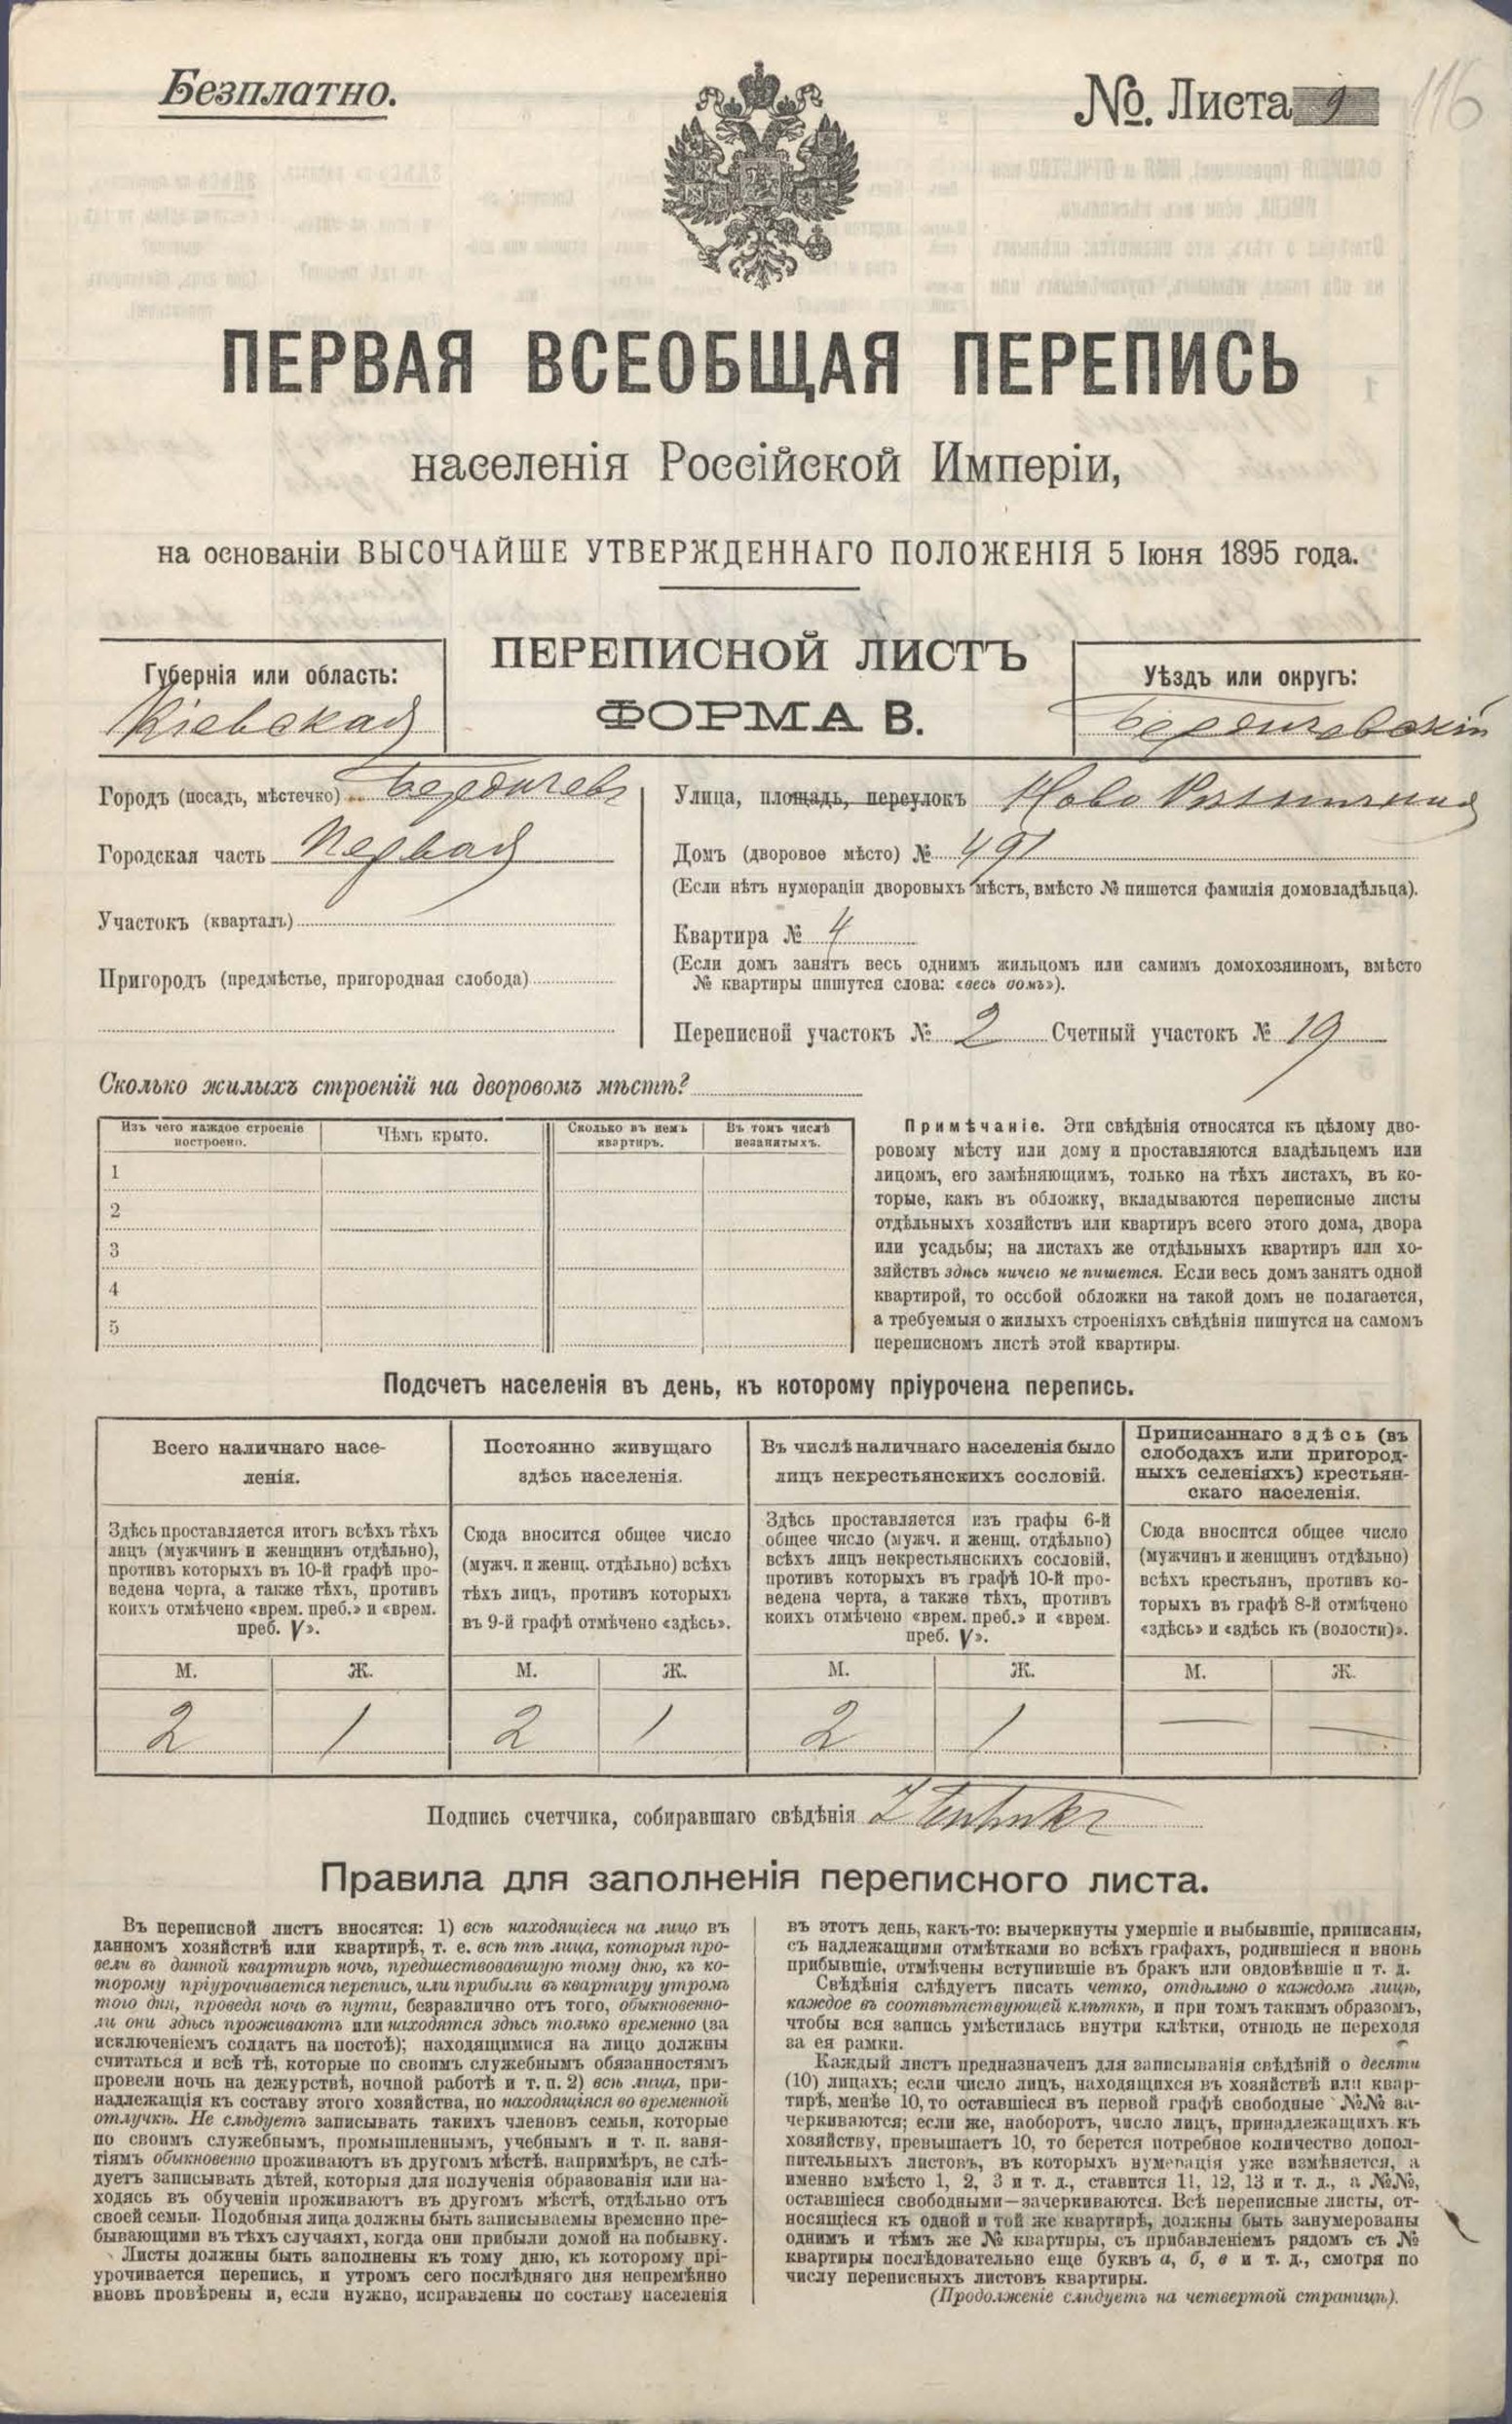 Безплатно.
№. Листа 9
116
ПЕРВАЯ ВСЕОБЩАЯ ПЕРЕПИСЬ
населенія Россійской Имперіи,
на основаніи ВЫСОЧАЙШЕ УТВЕРЖДЕННАГО ПОЛОЖЕНІЯ 5 Іюня 1895 года.
ПЕРЕПИСНОЙ ЛИСТЪ
ФОРМА В.
Губернія или область:
Кіевская
Уѣздъ или округъ:
Бердичевскій
Городъ (посадъ, мѣстечко) Бердичевъ
Городская часть Первая
Участокъ (кварталъ)
Пригородъ (предмѣстье, пригородная слобода)
Улица, площадь, переулокъ Ново
Домъ (дворовое мѣсто) № 491
(Если нѣтъ нумераціи дворовыхъ мѣстъ, вмѣсто № пишется фамилія домовладѣльца).
Квартира № 4
(Если домъ занятъ весь однимъ жильцомъ или самимъ домохозяиномъ, вмѣсто
№ квартиры пишутся слова: «весь домъ»).
Переписной участокъ № 2 Счетный участокъ № 19
Сколько жилыхъ строеній на дворовомъ мѣстѣ?
Изъ чего каждое строеніе
построено.
Чѣмъ крыто.
Сколько въ немъ
квартиръ.
Въ томъ числѣ
незанятыхъ.
1
2
3
4
5
Примѣчаніе. Эти свѣдѣнія относятся къ цѣлому дво-
ровому мѣсту или дому и проставляются владѣльцемъ или
лицомъ, его замѣняющимъ, только на тѣхъ листахъ, въ ко-
торые, какъ въ обложку, вкладываются переписные листы
отдѣльныхъ хозяйствъ или квартиръ всего этого дома, двора
или усадьбы; на листахъ же отдѣльныхъ квартиръ или хо-
зяйствъ здѣсь ничего не пишется. Если весь домъ занятъ одной
квартирой, то особой обложки на такой домъ не полагается,
а требуемыя о жилыхъ строеніяхъ свѣдѣнія пишутся на самомъ
переписномъ листѣ этой квартиры.
Подсчетъ населенія въ день, къ которому пріурочена перепись.
Всего наличнаго насе-
ленія.
Здѣсь проставляется итогъ всѣхъ тѣхъ
лицъ (мужчинъ и женщинъ отдѣльно),
противъ которыхъ въ 10-й графѣ про-
ведена черта, а также тѣхъ, противъ
коихъ отмѣчено «врем. преб.» и «врем.
преб. V».
М. Ж.
2 1
Постоянно живущаго
здѣсь населенія.
Сюда вносится общее число
(мужч. и женщ. отдѣльно) всѣхъ
тѣхъ лицъ, противъ которыхъ
въ 9-й графѣ отмѣчено «здѣсь».
М. Ж.
2 1
Въ числѣ наличнаго населенія было
лицъ некрестьянскихъ сословій.
Здѣсь проставляется изъ графы 6-й
общее число (мужч. и женщ. отдѣльно)
всѣхъ лицъ некрестьянскихъ сословій,
противъ которыхъ въ графѣ 10-й про-
ведена черта, а также тѣхъ, противъ
коихъ отмѣчено «врем. преб.» и «врем.
преб. V».
М. Ж.
2 1
Приписаннаго здѣсь (въ
слободахъ или пригород-
ныхъ селеніяхъ) крестьян-
скаго населенія.
Сюда вносится общее число
(мужчинъ и женщинъ отдѣльно)
всѣхъ крестьянъ, противъ ко-
торыхъ въ графѣ 8-й отмѣчено
«здѣсь» и «здѣсь къ (волости)».
М. Ж.
— —
Подпись счетчика, собиравшаго свѣдѣнія
Правила для заполненія переписного листа.
Въ переписной листъ вносятся: 1) всѣ находящіеся на лицо въ
данномъ хозяйствѣ или квартирѣ, т. е. всѣ тѣ лица, которыя про-
вели въ данной квартирѣ ночь, предшествовавшую тому дню, къ ко-
торому пріурочивается перепись, или прибыли въ квартиру утромъ
того дня, проведя ночь въ пути, безразлично отъ того, обыкновенно-
ли они здѣсь проживаютъ или находятся здѣсь только временно (за
исключеніемъ солдатъ на постоѣ); находящимися на лицо должны
считаться и всѣ тѣ, которые по своимъ служебнымъ обязанностямъ
провели ночь на дежурствѣ, ночной работѣ и т. п. 2) всѣ лица, при-
надлежащія къ составу этого хозяйства, но находящіяся во временной
отлучкѣ. Не слѣдуетъ записывать такихъ членовъ семьи, которые
по своимъ служебнымъ, промышленнымъ, учебнымъ и т. п. заня-
тіямъ обыкновенно проживаютъ въ другомъ мѣстѣ, напримѣръ, не слѣ-
дуетъ записывать дѣтей, которыя для полученія образованія или на-
ходясь въ обученіи проживаютъ въ другомъ мѣстѣ, отдѣльно отъ
своей семьи. Подобныя лица должны быть записываемы временно пре-
бывающими въ тѣхъ случаяхъ, когда они прибыли домой на побывку.
Листы должны быть заполнены къ тому дню, къ которому прі-
урочивается перепись, и утромъ сего послѣдняго дня непремѣнно
вновь провѣрены и, если нужно, исправлены по составу населенія
въ этотъ день, какъ-то: вычеркнуты умершіе и выбывшіе, приписаны,
съ надлежащими отмѣтками во всѣхъ графахъ, родившіеся и вновь
прибывшіе, отмѣчены вступившіе въ бракъ или овдовѣвшіе и т. д.
Свѣдѣнія слѣдуетъ писать четко, отдѣльно о каждомъ лицѣ,
каждое въ соотвѣтствующей клѣткѣ, и при томъ такимъ образомъ,
чтобы вся запись умѣстилась внутри клѣтки, отнюдь не переходя
за ея рамки.
Каждый листъ предназначенъ для записыванія свѣдѣній о десяти
(10) лицахъ; если число лицъ, находящихся въ хозяйствѣ или квар-
тирѣ, менѣе 10, то оставшіеся въ первой графѣ свободные №№ за-
черкиваются; если же, наоборотъ, число лицъ, принадлежащихъ къ
хозяйству, превышаетъ 10, то берется потребное количество допол-
нительныхъ листовъ, въ которыхъ нумерація уже измѣняется, а
именно вмѣсто 1, 2, 3 и т. д., ставится 11, 12, 13 и т. д., а №№,
оставшіеся свободными—зачеркиваются. Всѣ переписные листы, от-
носящіеся къ одной и той же квартирѣ, должны быть занумерованы
однимъ и тѣмъ же № квартиры, съ прибавленіемъ рядомъ съ №
квартиры послѣдовательно еще буквъ а, б, в и т. д., смотря по
числу переписныхъ листовъ квартиры.
(Продолженіе слѣдуетъ на четвертой страницѣ).